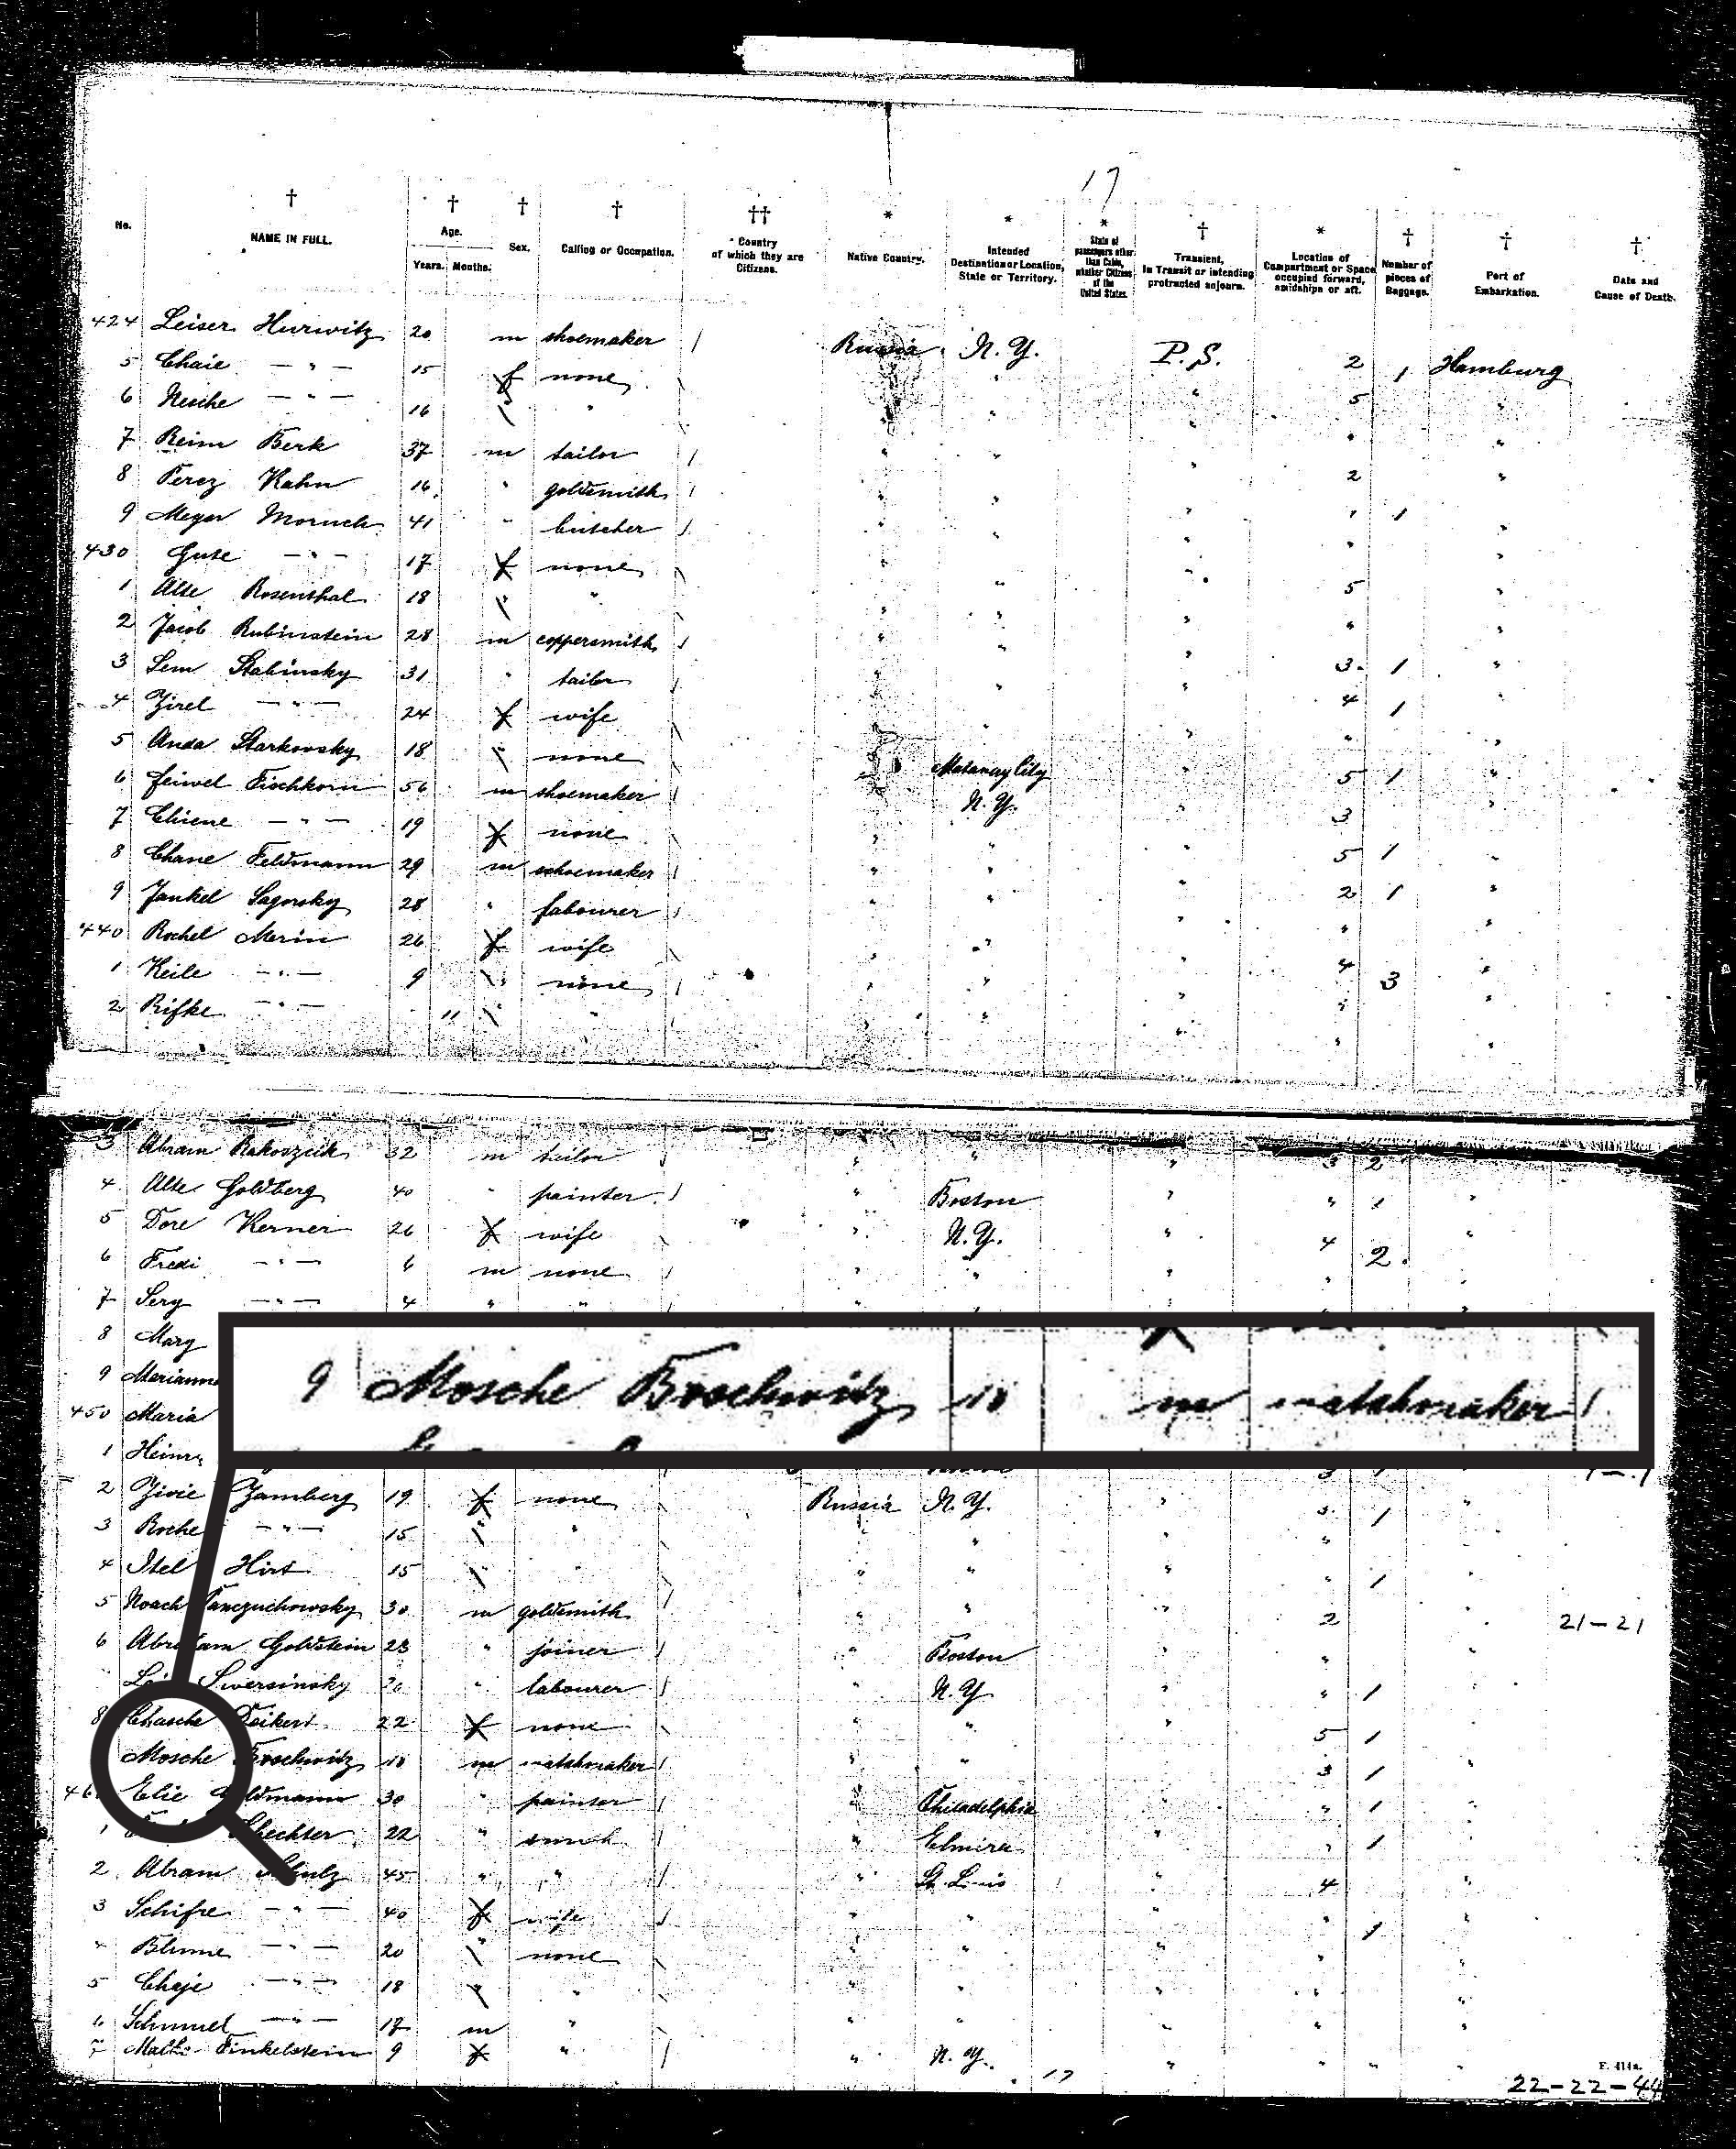 17
No. † NAME IN FULL. † Age. Years. Months. † Sex. † Calling or Occupation. †† Country of which they are Citizens. * Native Country. * Intended Destination or Location, State or Territory. * State of passengers other than Cabin, whether Citizens of the United States. † Transient, In Transit or intending protracted sojourn. * Location of Compartment or Space occupied forward, amidships or aft. † Number of pieces of Baggage. † Port of Embarkation. † Date and Cause of Death.
424 Leiser Hurwitz 20 m shoemaker / Russia N.Y. P.S. 2 1 Hamburg
5 Chaie — " — 15 f none \ " " 5 "
6 Nesche — " — 16 \ " \ " " " "
7 Reim Berk 37 m tailor / " " " 2 "
8 Perez Kahn 16 " goldsmith / " " " " 1 "
9 Meyer 41 " butcher / " " " " "
430 Gute — " — 17 f none \ " " " 5 "
1 Alte Rosenthal 18 \ " " " " " "
2 Jacob Rubinstein 28 m coppersmith / " " " 3 1 "
3 Lem Stabinsky 31 " tailor / " " " 4 1 "
4 Zirel — " — 24 f wife \ " " " "
5 Anda Starkowsky 18 \ none \ 5 1 "
6 Feiwel Fischkorn 56 m shoemaker / N.Y. " 3 "
7 — " — 19 f none \ " " " 5 1 "
8 Chane Feldmann 29 m schoemaker / " " " 2 1 "
9 Jankel Sagorsky 28 " labourer / " " " " "
440 Rochel Merin 26 f wife \ " " " 4 3 "
1 Keile — " — 9 \ none / " " " " "
2 Rifke — " — 11 \ " / " " " " "
3 Abram 32 m tailor / " " " 3 2
4 Alte Goldberg 40 " painter / " Boston " " 1 "
5 Dore Kerner 26 f wife \ " N.Y. " 4 2 "
6 Fredi — " — 6 m none / " " " "
7 Sery — " — 4 " " / " " "
8 Mary
9 Marianne
9 Mosche Brochwitz 18 m matchmaker /
450 Maria
1
2 Zivie Zamberg 19 f none \ Russia N.Y. " 3 1 "
3 Roche — " — 15 \ " \ " " "
4 Itel Hirt 15 \ " \ " " " 1
5 Noach 30 m goldsmith / " " " 2 " 21–21
6 Abraham Goldstein 23 " joiner / " Boston " " "
Swersinsky 20 " labourer / " N.Y. " " 1
8 Chasche Deikert 22 f none \ " " " 5 1
Mosche Brochwitz 18 m matchmaker / " " 3 1 "
46 Elie 30 " painter / " Philadelphia " " 1 "
1 Schechter 22 " smith / " Elmira " " 1
2 Abram Schulz 45 " " / " St. Louis " 4 "
3 Schifre — " — 40 f wife / " " " " 1 "
4 Blume — " — 20 \ none \ " " " " "
5 Chaje — " — 18 \ " " " " " "
6 Schmuel — " — 17 m " \ " " " " "
7 Finkelstein 9 f " / " N.Y. " " " "
17
F. 414a.
22–22–44